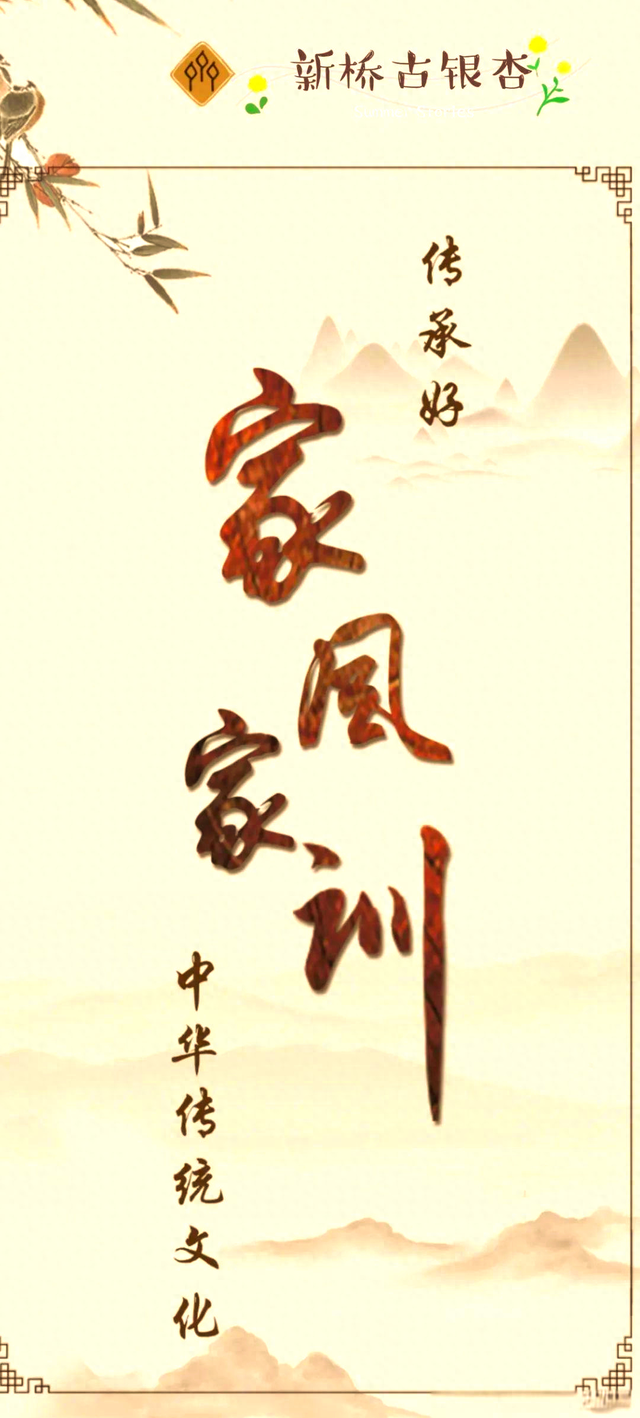 新桥古银杏
传承好
家風
家训
中华传统文化